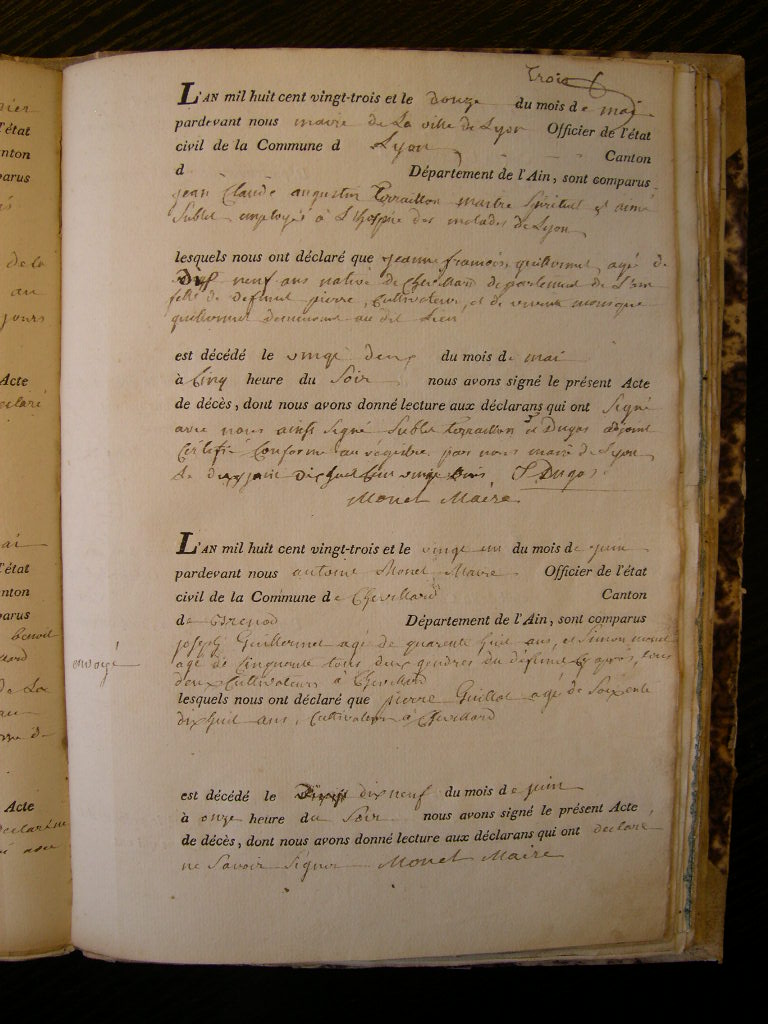 trois
L'AN mil huit cent vingt-trois et le douze du mois de mai
pardevant nous maire de La ville de Lyon Officier de l'état
civil de la Commune d Lyon Canton
d Département de l'Ain, sont comparus
jean Claude augustin Terraillon maitre Spirituel et aimé
Sublet employés à L'hospice des malades de Lyon
lesquels nous ont déclaré que jeanne françoise guillermet agé de
Dix neuf ans native de Chevillard departement de L'ain
fille de defunt pierre, Cultivateur, et de vivante monique
guillermet demeurant au dit Lieu
est décédé le vingt deux du mois de mai
à Cinq heure du Soir nous avons signé le présent Acte
de décès, dont nous avons donné lecture aux déclarans qui ont Signé
avec nous ainsi Signé Sublet Terraillon et Dugas adjoint
Certifié Conforme au régistre par nous maire de Lyon
Le deux juin dix huit cent vingt trois, Dugas
Monet Maire
L'AN mil huit cent vingt-trois et le vingt un du mois de juin
pardevant nous antoine Monet Maire Officier de l'état
civil de la Commune de Chevillard Canton
de Brenod Département de l'Ain, sont comparus
joseph Guillermet agé de quarente huit ans, et Simon monet
envoyé
agé de Cinquante tous deux gendres du défunt Cy après, tous
deux Cultivateurs à Chevillard
lesquels nous ont déclaré que pierre Guillot agé de Soixente
dix huit ans, Cultivateur à Chevillard
est décédé le dix neuf du mois de juin
à onze heure du Soir nous avons signé le présent Acte
de décès, dont nous avons donné lecture aux déclarans qui ont declaré
ne Savoir Signer Monet Maire